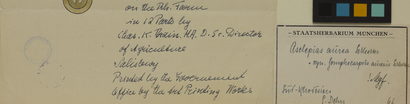 on the
in 12 Parts by
Chas. K. Brain. M.A. D. Sc. Director
of Agriculture
Salisbury
Printed by the Government
Office by the Art Printing Works
STAATSHERBARIUM MÜNCHEN
Asclepias aurea
= syn. Gomphocarpus aureus
Süd-Rhodesien